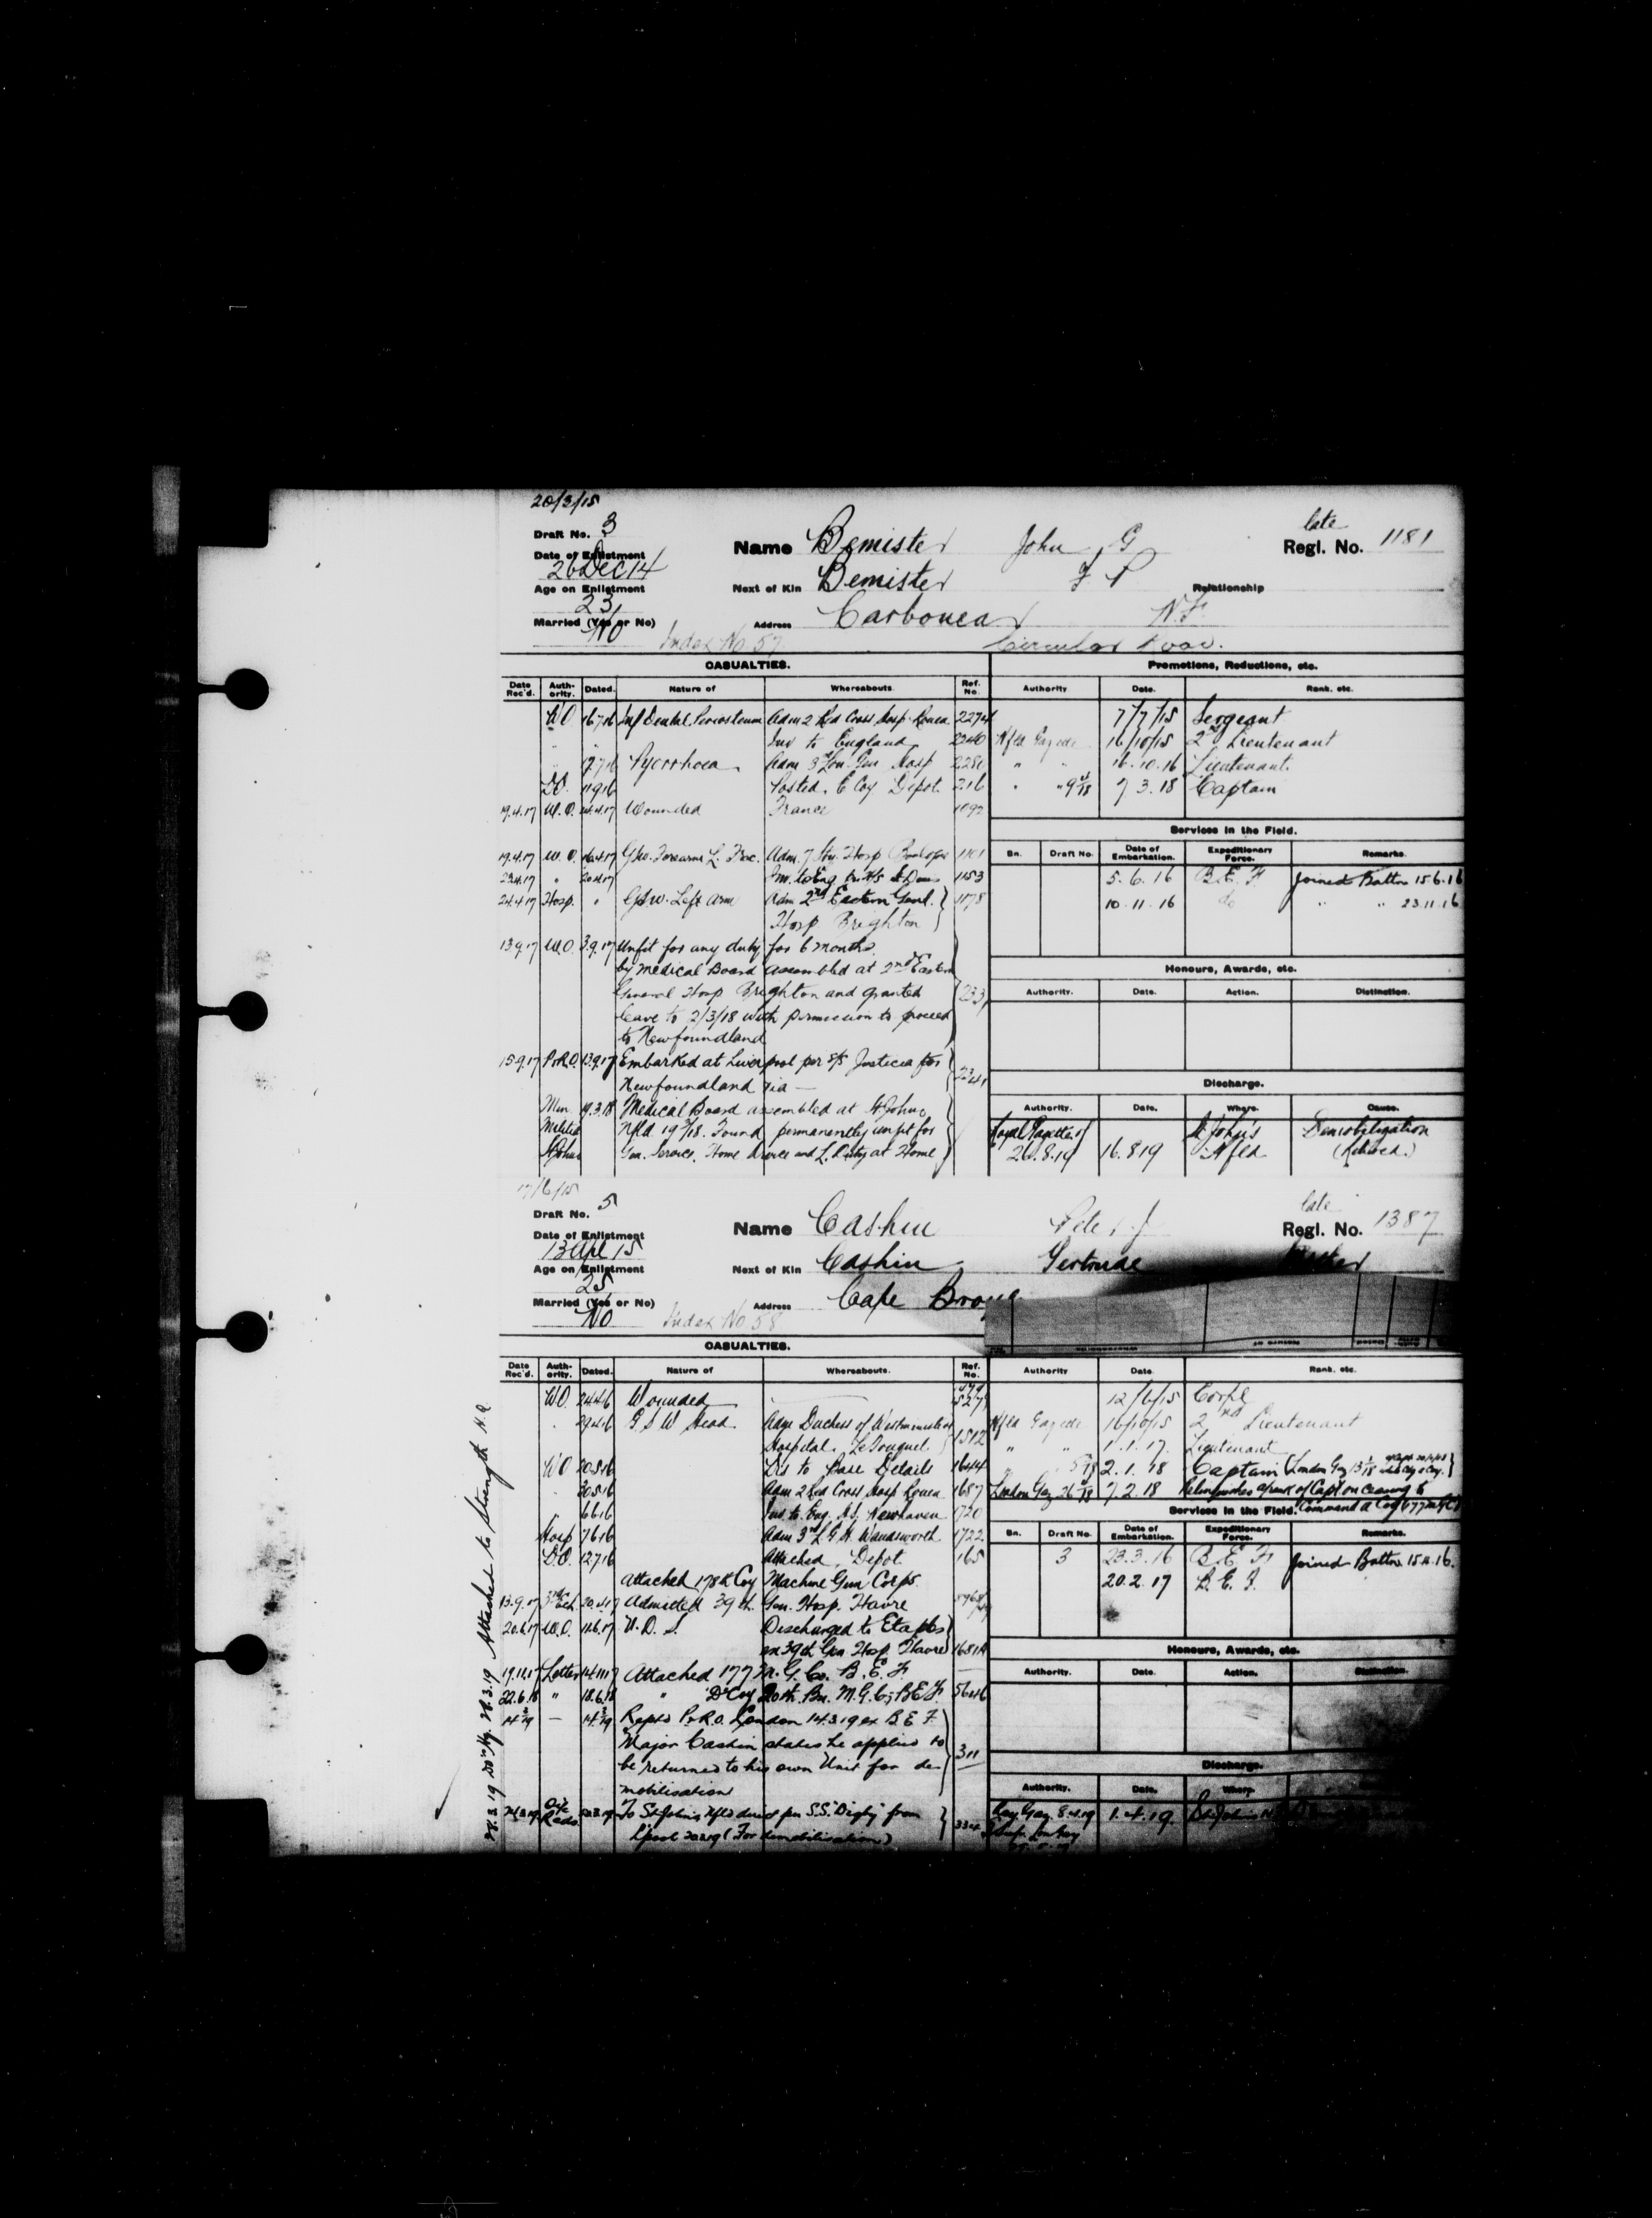 20/3/15
Draft No. 3
Date of Enlistment
26 Dec 14
Age on Enlistment
23
Married (Yes or No)
No
Name Bemister John G
late
Regl. No. 1181
Next of Kin Bemister F P Relationship
Address Carbonear N.F.
Index No. 57 Circular Road.
CASUALTIES.
Date Rec'd. Authority. Dated. Nature of Whereabouts. Ref. No.
WO 16.7.16 Inf Dental Periosteum Adm 2 Red Cross Hosp Rouen 2274
" " Inv to England 2240
" 17.7.16 Pyorrhoea Adm 3rd Lon. Gen Hosp 2280
DO. 11.9.16 Posted, E Coy Depot. 216
19.4.17 W.O. 14.4.17 Wounded France 1092
19.4.17 W.O. 16.4.17 GSW. Forearm L. Frac. Adm. 7 Sty. Hosp Boulogne 1101
23.4.17 " 20.4.17 Inv. to Eng. 1153
24.4.17 Hosp. " GSW. Left Arm Adm 2nd Eastern Genl. Hosp Brighton 1178
13.9.17 W.O. 3.9.17 Unfit for any duty for 6 months
by Medical Board assembled at 2nd Eastern
General Hosp Brighton and granted
leave to 2/3/18 with permission to proceed
to Newfoundland
15.9.17 P.&R.O. 13.9.17 Embarked at Liverpool per S/S Justicia for
Newfoundland via — 2341
Min. Militia St Johns 19.3.18 Medical Board assembled at St Johns
Nfld 19 3/18. Found permanently unfit for
Gen. Service. Home Service and L. Duty at Home
Promotions, Reductions, etc.
Authority Date. Rank. etc.
7/7/15 Sergeant
Nfld Gazette 16/10/15 2nd Lieutenant
" " 16.10.16 Lieutenant.
" " 7 3.18 Captain
Services in the Field.
Bn. Draft No. Date of Embarkation. Expeditionary Force. Remarks.
5.6.16 B.E.F Joined Battn 15.6.16
10.11.16 do " " 23.11.16
Honours, Awards, etc.
Authority. Date. Action. Distinction.
Discharge.
Authority. Date. Where. Cause.
Royal Gazette of 26.8.19 16.8.19 St John's Nfld Demobilization (Retired.)
17/6/15
Draft No. 5
Date of Enlistment
13 Apl 15
Age on Enlistment
25
Married (Yes or No)
No
Name Cashin Peter J
late
Regl. No. 1387
Next of Kin Cashin Gertrude Mother
Address Cape Broyle
Index No. 58
CASUALTIES.
Date Rec'd. Authority. Dated. Nature of Whereabouts. Ref. No.
WO 24.4.16 Wounded 527
" 29.4.16 G S W Head Adm Duchess of Westminsters
Hospital. Le Touquet 1512
WO 20.5.16 Dis to Base Details 1644
" 30.5.16 Adm 2 Red Cross Hosp Rouen 1687
6.6.16 Inv to Eng. H.S. Newhaven 1720
Hosp 7.6.16 Adm 3rd L G H. Wandsworth 1722
D.O. 12.7.16 Attached Depot 165
Attached 178th Coy Machine Gun Corps.
13.9.17 Admitted 39th Gen. Hosp. Havre
20.6.17 W.O. 11.6.17 V.D.S. Discharged to Etaples
ex 39th Gen Hosp Havre 1681A
19.11.17 Letter 14.11.17 Attached 177 M.G. Co. B.E.F.
22.6.18 " 18.6.18 " D Coy 20th Bn. M.G.C. B.E.F. 5646
14 3/19 — 14 3/19 Reptd P.&R.O. London 14.3.19 ex B.E.F.
Major Cashin states he applied to
be returned to his own Unit for de-
mobilisation 311
To St John's Nfld direct per S.S. "Digby" from
L'pool 22.3.19 (For demobilisation) 334
Authority Date. Rank. etc.
12/6/15 Corpl
Nfld Gazette 16/10/15 2nd Lieutenant
" " 1.1.17. Lieutenant
" 2.1.18 Captain
London Gaz 26 7.2.18 Relinquishes a/rank of Capt on ceasing to
Services in the Field. Command a Coy 177 M.G.C.
Bn. Draft No. Date of Embarkation. Expeditionary Force. Remarks.
3 23.3.16 B.E.F. Joined Battn 15.4.16.
20.2.17 B.E.F.
Honours, Awards, etc.
Authority. Date. Action. Distinction.
Discharge.
Authority. Date. Where.
Roy. Gaz. 8.4.19 1.4.19. St Johns
Attached to Strength H.Q.